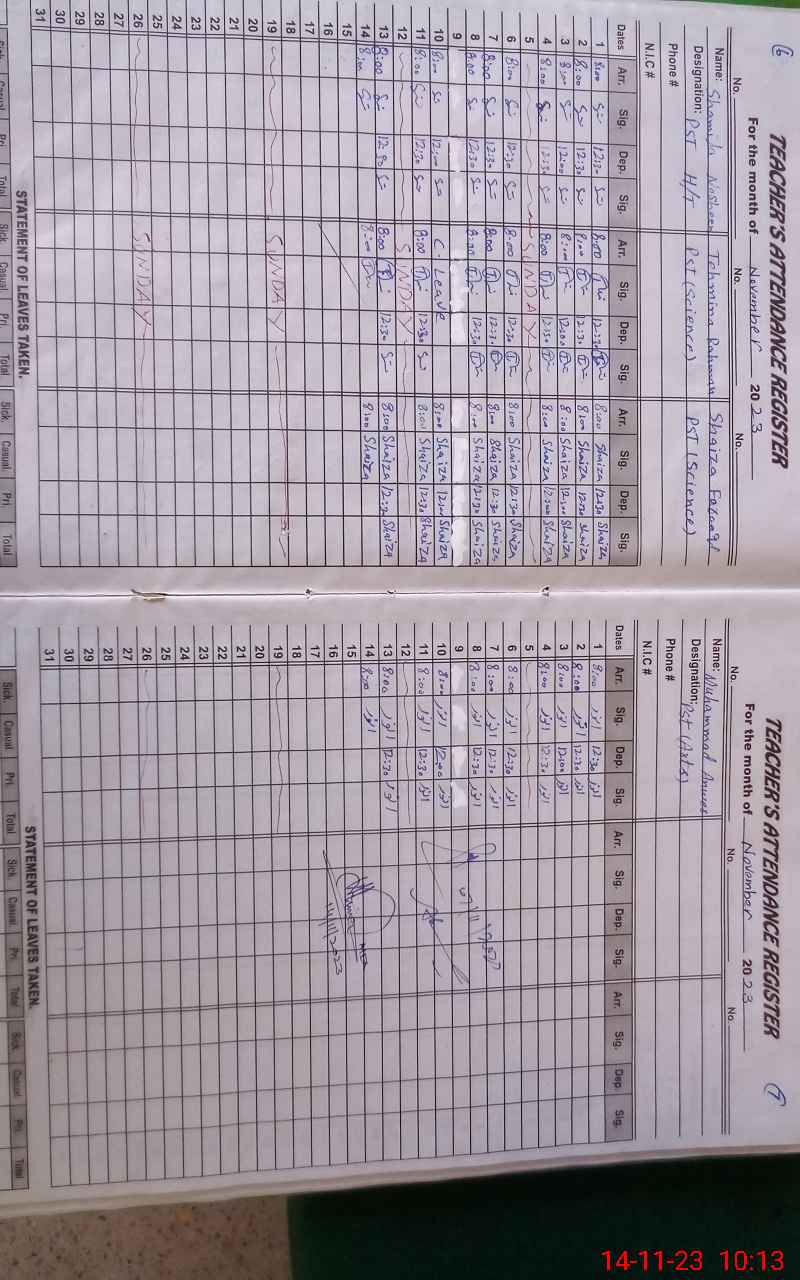 6
TEACHER'S ATTENDANCE REGISTER
No. No. No.
For the month of November 2023
Name: Shamila Nosheen Tehmina Rahman Shaiza Farooqi
Designation: PST H/T PST (Science) PST (Science)
Phone #
N.I.C #
Dates Arr. Sig. Dep. Sig. Arr. Sig. Dep. Sig. Arr. Sig. Dep. Sig.
1 8:00 12:30 8:00 12:30 8:00 Shaiza 12:30 Shaiza
2 8:00 12:30 8:00 12:30 8:00 Shaiza 12:30 Shaiza
3 8:00 12:00 8:00 12:00 8:00 Shaiza 12:00 Shaiza
4 8:00 12:30 8:00 12:30 8:00 Shaiza 12:30 Shaiza
5 SUNDAY
6 8:00 12:30 8:00 12:30 8:00 Shaiza 12:30 Shaiza
7 8:00 12:30 8:00 12:30 8:00 Shaiza 12:30 Shaiza
8 8:00 12:30 8:00 12:30 8:00 Shaiza 12:30 Shaiza
9
10 8:00 12:00 C. Leave 8:00 Shaiza 12:00 Shaiza
11 8:00 12:30 8:00 12:30 8:00 Shaiza 12:30 Shaiza
12 SUNDAY
13 8:00 12:30 8:00 12:30 8:00 Shaiza 12:30 Shaiza
14 8:00 8:00 8:00 Shaiza
15
16
17
18
19 SUNDAY
20
21
22
23
24
25
26 SUNDAY
27
28
29
30
31
STATEMENT OF LEAVES TAKEN.
Sick. Casual Pri. Total Sick. Casual. Pri. Total Sick. Casual. Pri. Total
7
TEACHER'S ATTENDANCE REGISTER
No. No. No.
For the month of November 2023
Name: Muhammad Anwar
Designation: PST (Arts)
Phone #
N.I.C #
Dates Arr. Sig. Dep. Sig. Arr. Sig. Dep. Sig. Arr. Sig. Dep. Sig.
1 8:00 انور 12:30 انور
2 8:00 انور 12:30 انور
3 8:00 انور 12:00 انور
4 8:00 انور 12:30 انور
5
6 8:00 انور 12:30 انور
7 8:00 انور 12:30 انور
8 8:00 انور 12:30 انور
9
10 8:00 انور 12:00 انور
11 8:00 انور 12:30 انور
12
13 8:00 انور 12:30 انور
14 8:00 انور
15
16 14/11/2023
17
18
19
20
21
22
23
24
25
26
27
28
29
30
31
STATEMENT OF LEAVES TAKEN.
Sick. Casual Pri. Total Sick. Casual. Pri. Total Sick. Casual. Pri. Total
14-11-23 10:13